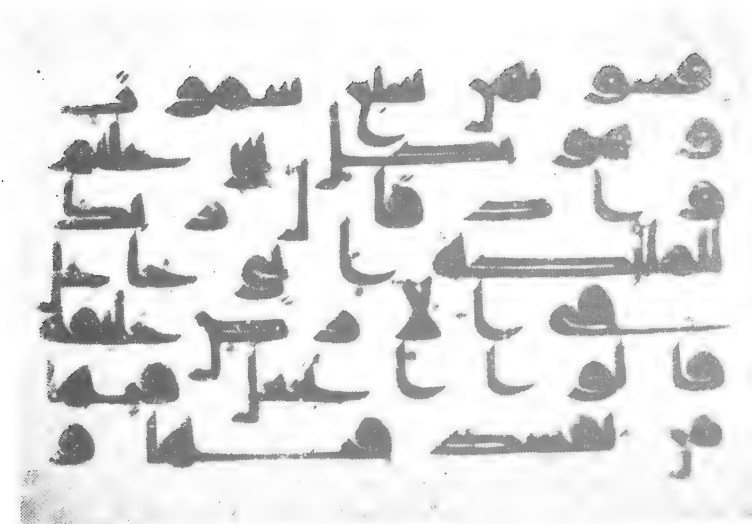 فسويهن سبع سموت
و هو بكل شى عليم
و اذ قال ربك
للملئكه انى جاعل
فى الارض خليفه
قالوا اتجعل فيها
من يفسد فيها و